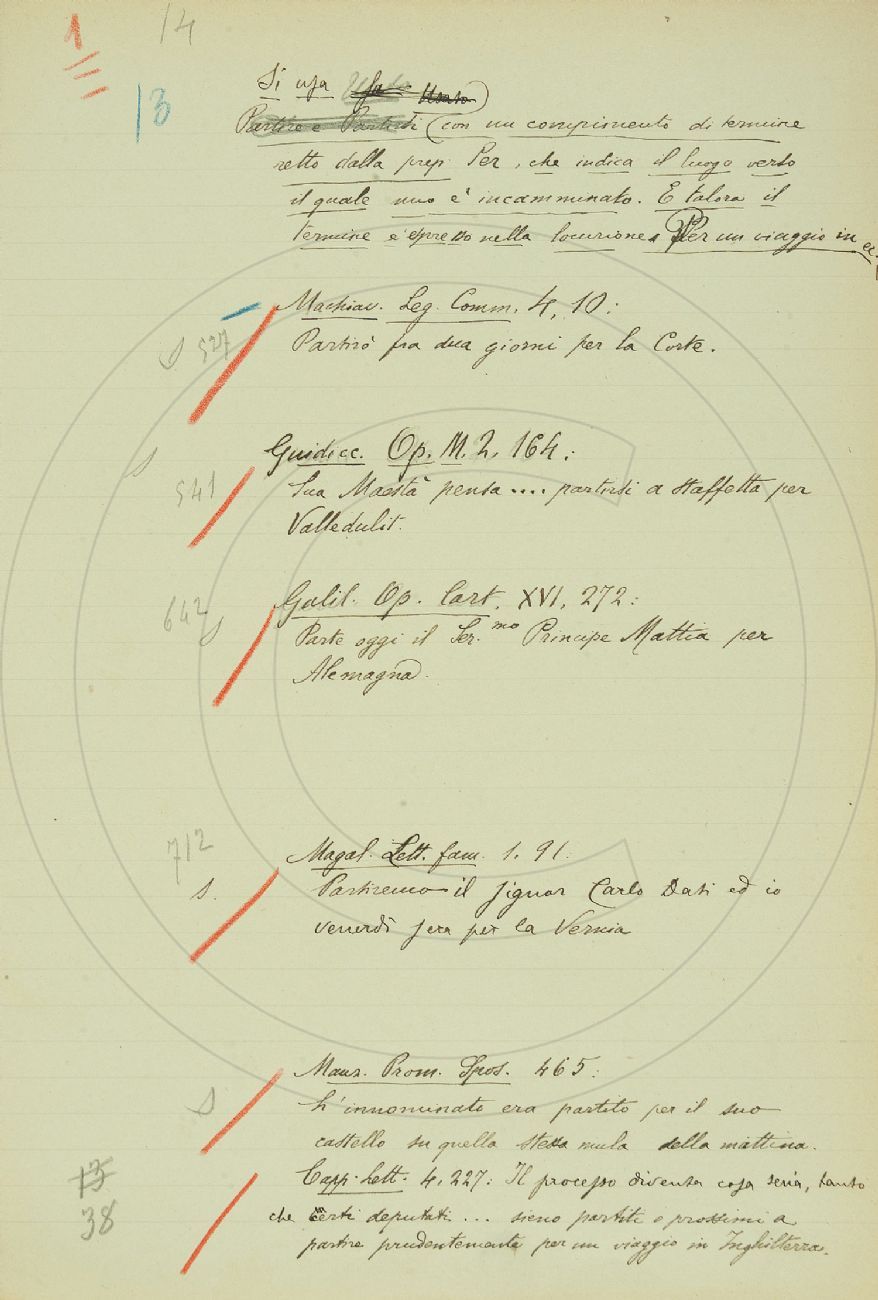 1
14
13
Si usa Usato
Partire e Partirsi (con un compimento di termine
retto dalla prep. Per, che indica il luogo verso
il quale uno è incamminato. E talora il
termine è espresso nella locuzione Per un viaggio in
Machiav. Leg. Comm. 4, 10:
S 527
Partirò fra due giorni per la Corte.
Guidicc. Op. M. 2, 164:
S
541
Sua Maestà pensa .... partirsi a staffetta per
Valledulit.
Galil. Op. Cart. XVI, 272:
642
S
Parte oggi il Ser.mo Principe Mattia per
Alemagna.
Magal. Lett. fam. 1, 91:
712
S.
Partiremo il signor Carlo Dati ed io
venerdì sera per la Vernia
Manz. Prom. Spos. 465:
S
L'innominato era partito per il suo
castello su quella stessa mula della mattina.
Capp. Lett. 4, 227: Il processo diventa cosa seria, tanto
13
che certi deputati ... sieno partiti o prossimi a
38
partire prudentemente per un viaggio in Inghilterra.